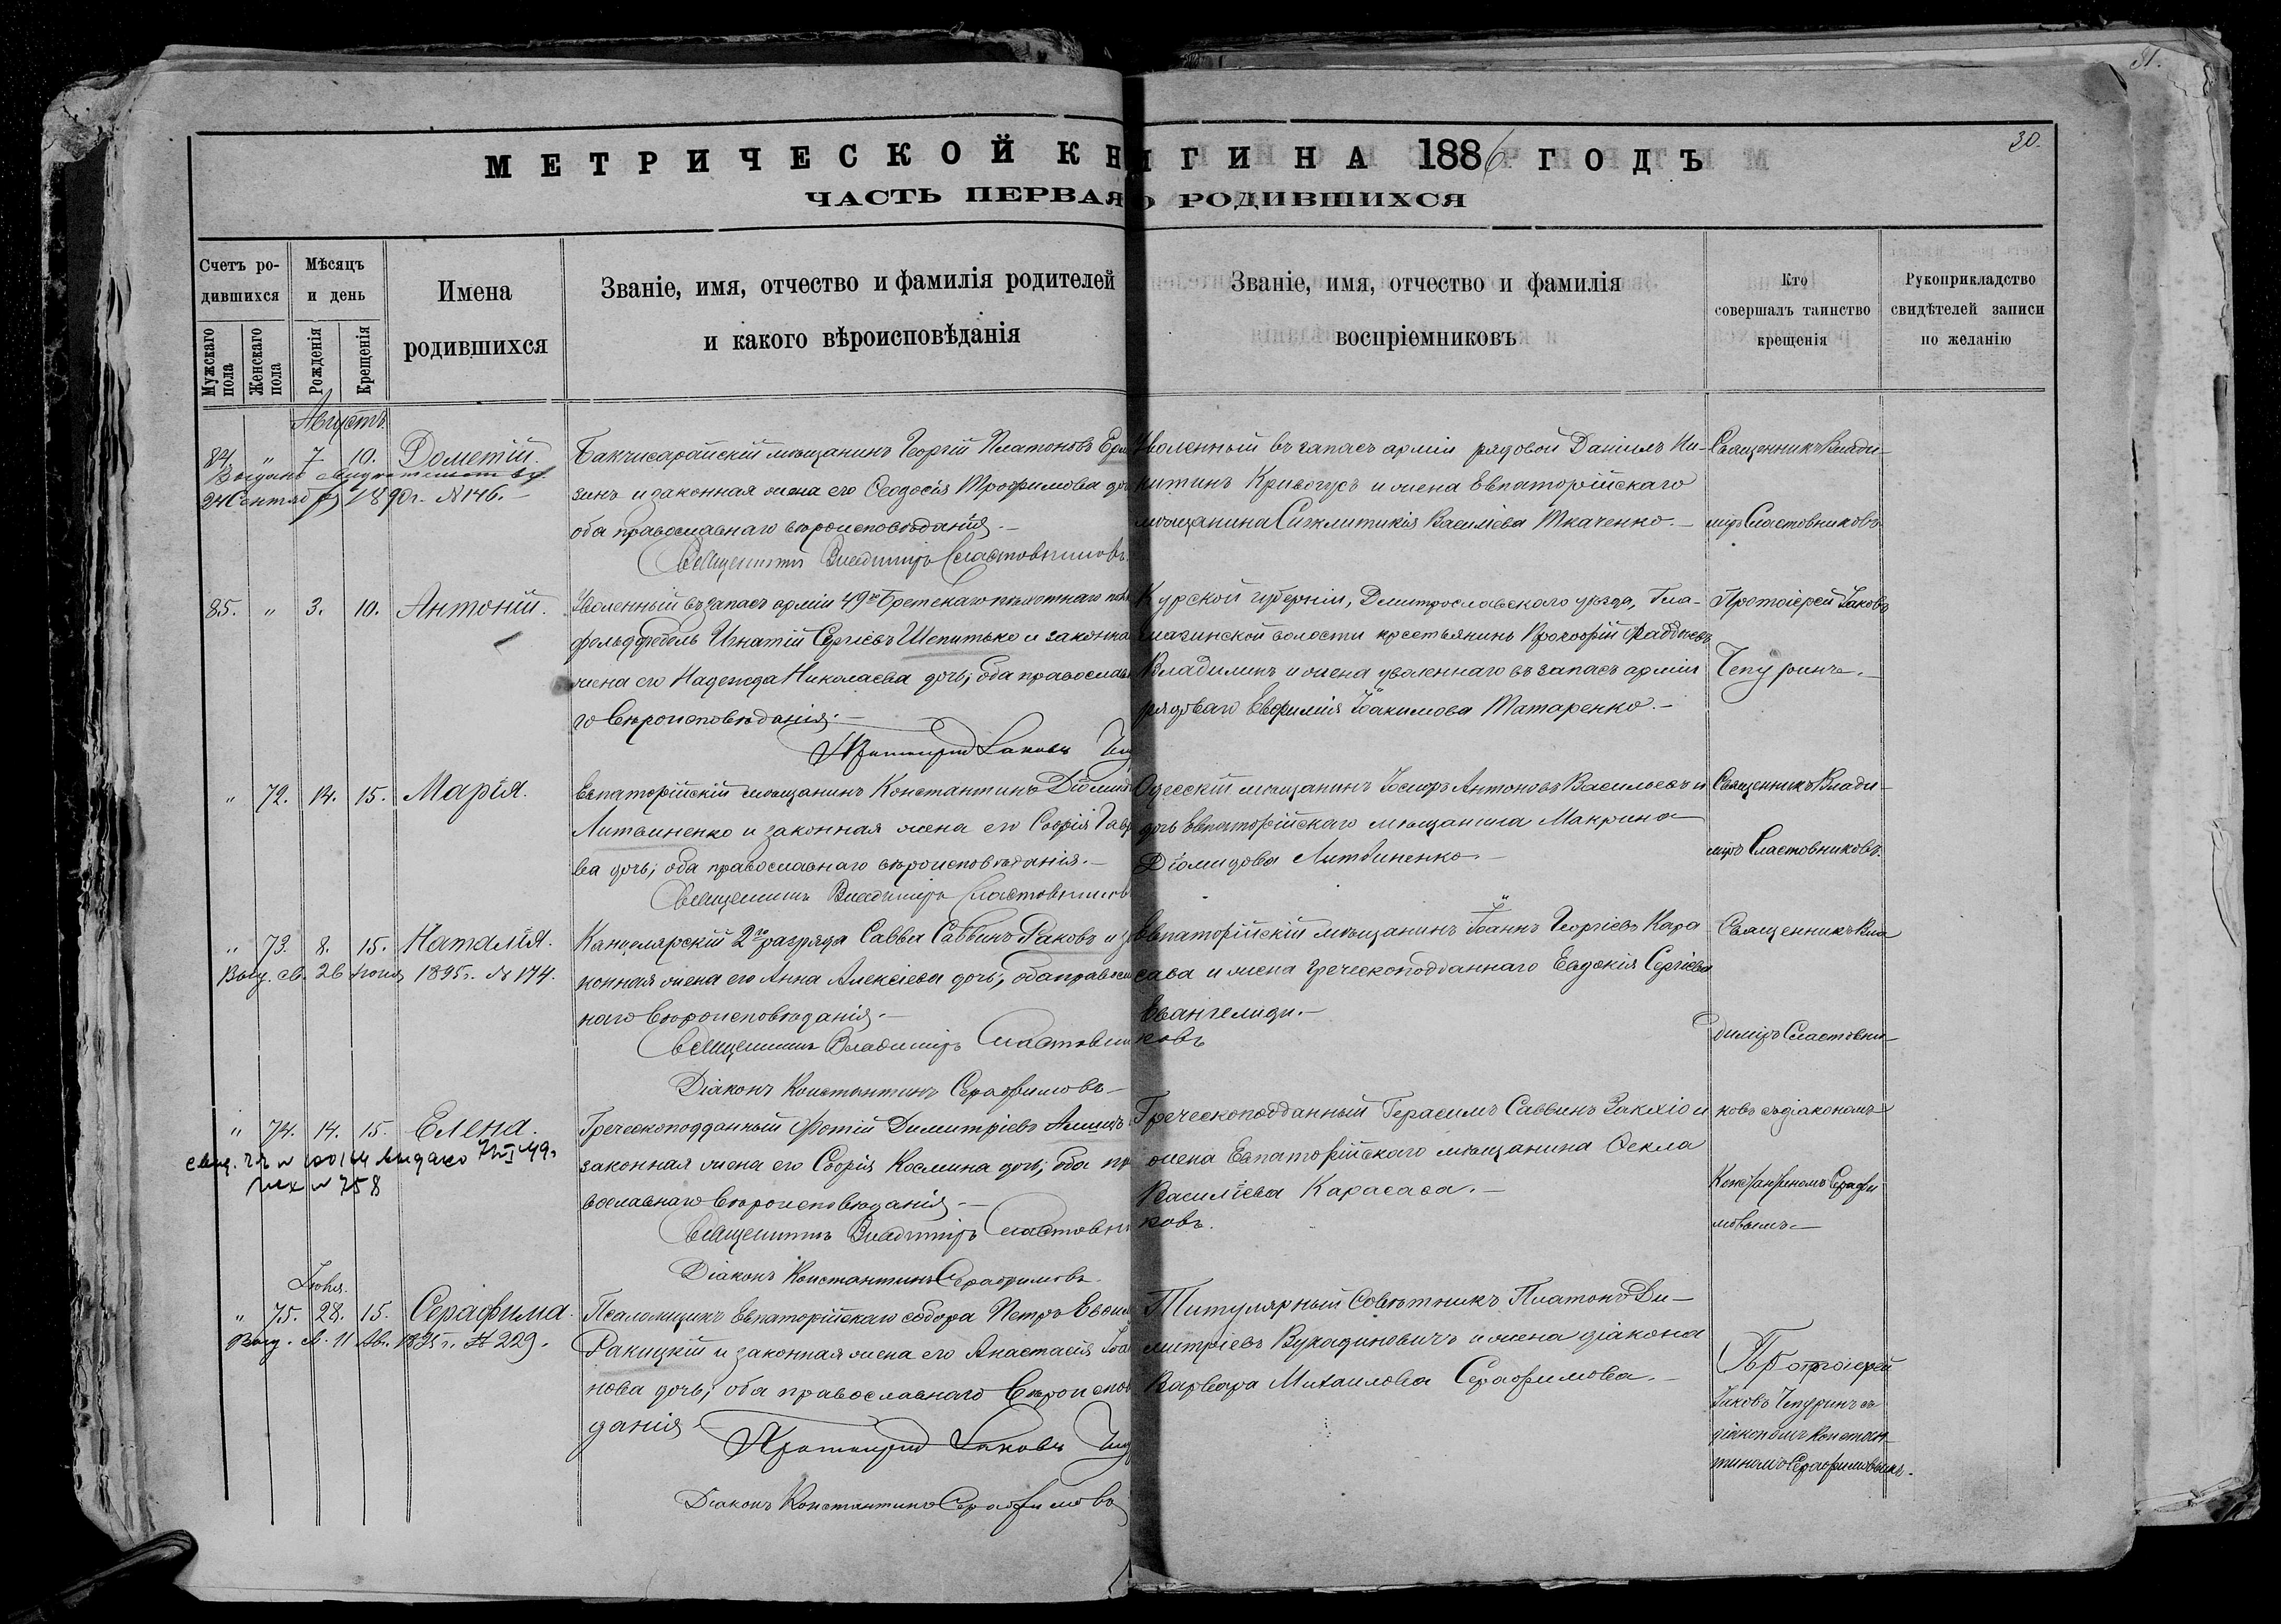 31.
30.
МЕТРИЧЕСКОЙ КНИГИ НА 1886 ГОДЪ
ЧАСТЬ ПЕРВАЯ О РОДИВШИХСЯ
Счетъ ро-
дившихся
Мужскаго пола
Женскаго пола
Мѣсяцъ
и день
Рожденія
Крещенія
Имена
родившихся
Званіе, имя, отчество и фамилія родителей
и какого вѣроисповѣданія
Званіе, имя, отчество и фамилія
воспріемниковъ
Кто
совершалъ таинство
крещенія
Рукоприкладство
свидѣтелей записи
по желанію
Августъ
84 " 7 10. Дометій.
24 Сентября 1890 г. № 146.
Бакчисарайскій мѣщанинъ Георгій Платоновъ
зинъ и законная жена его Ѳеодосія Трофимова
оба православнаго вѣроисповѣданія.—
Священникъ Владиміръ Сластовниковъ
Уволенный въ запасъ арміи рядовой Даніилъ Ни-
китинъ Кривогузъ и жена Евпаторійскаго
мѣщанина Сигклитикія Василіева Ткаченко.—
Священникъ Влади-
міръ Сластовниковъ
85. " 3. 10. Антоній.
Уволенный въ запасъ арміи 49го Брестскаго пѣхотнаго
фельдфебель Игнатій Сергіевъ Шепитько и законна
жена его Надежда Николаева дочь; оба православ
го вѣроисповѣданія.—
Протоіерей Іаковъ
Курской губерніи, Дмитрославскаго уѣзда,
волости крестьянинъ Прокофій Фаддѣевъ
Владиминъ и жена уволеннаго въ запасъ арміи
рядоваго Евфимія Іоакимова Татаренко.—
Протоіерей Іаковъ
Чепуринъ.—
" 72. 14. 15. Марія.
Евпаторійскій мѣщанинъ Константинъ Діомид
Литвиненко и законная жена его Софія Гавр
ва дочь; оба православнаго вѣроисповѣданія.—
Священникъ Владиміръ Сластовников
Одесскій мѣщанинъ Іосифъ Антоновъ Васильевъ и
дочь Евпаторійскаго мѣщанина Макрина
Діомидова Литвиненко.—
Священникъ Влади-
міръ Сластовниковъ.
" 73. 8. 15. Наталія.
Выд. св. 26 Іюня 1895 г. № 174.
Канцелярскій 2го разряда Савва Саввинъ Раковъ и за
конная жена его Анна Алексіева дочь; оба правосл
наго вѣроисповѣданія.—
Священникъ Владиміръ Сластовниковъ
Діаконъ Константинъ Серафимовъ—
Евпаторійскій мѣщанинъ Іоаннъ Георгіевъ Кара
саса и жена греческоподданнаго Евдокія Сергіева
Евангелиди.—
Священникъ Вла
диміръ Сластовни-
" 74. 14. 15. Елена.
№ 758
Греческоподданный Фотій Димитріевъ
законная жена его Софія Космина дочь; оба пр
вославнаго вѣроисповѣданія—
Священникъ Владиміръ Сластовниковъ.
Діаконъ Константинъ Серафимовъ.
Греческоподданный Герасимъ Саввинъ и
жена Евпаторійскаго мѣщанина Ѳекла
Василіева Карасаса.—
ковъ съ діакономъ
Константиномъ Серафи
мовымъ.—
Іюня.
" 75. 28. 15. Серафима.
Выд. № 229.
Псаломщикъ Евпаторійскаго собора Петръ
Ракицкій и законная жена его Анастасія Іоа
нова дочь; оба православнаго вѣроиспов
данія
Протоіерей Іаковъ
Діаконъ Константинъ Серафимовъ
Титулярный Совѣтникъ Платонъ Ди-
митріевъ Вукадиновичъ и жена діакона
Варвара Михаилова Серафимова.—
Протоіерей
Іаковъ Чепуринъ съ
діакономъ Констан-
тиномъ Серафимовымъ.